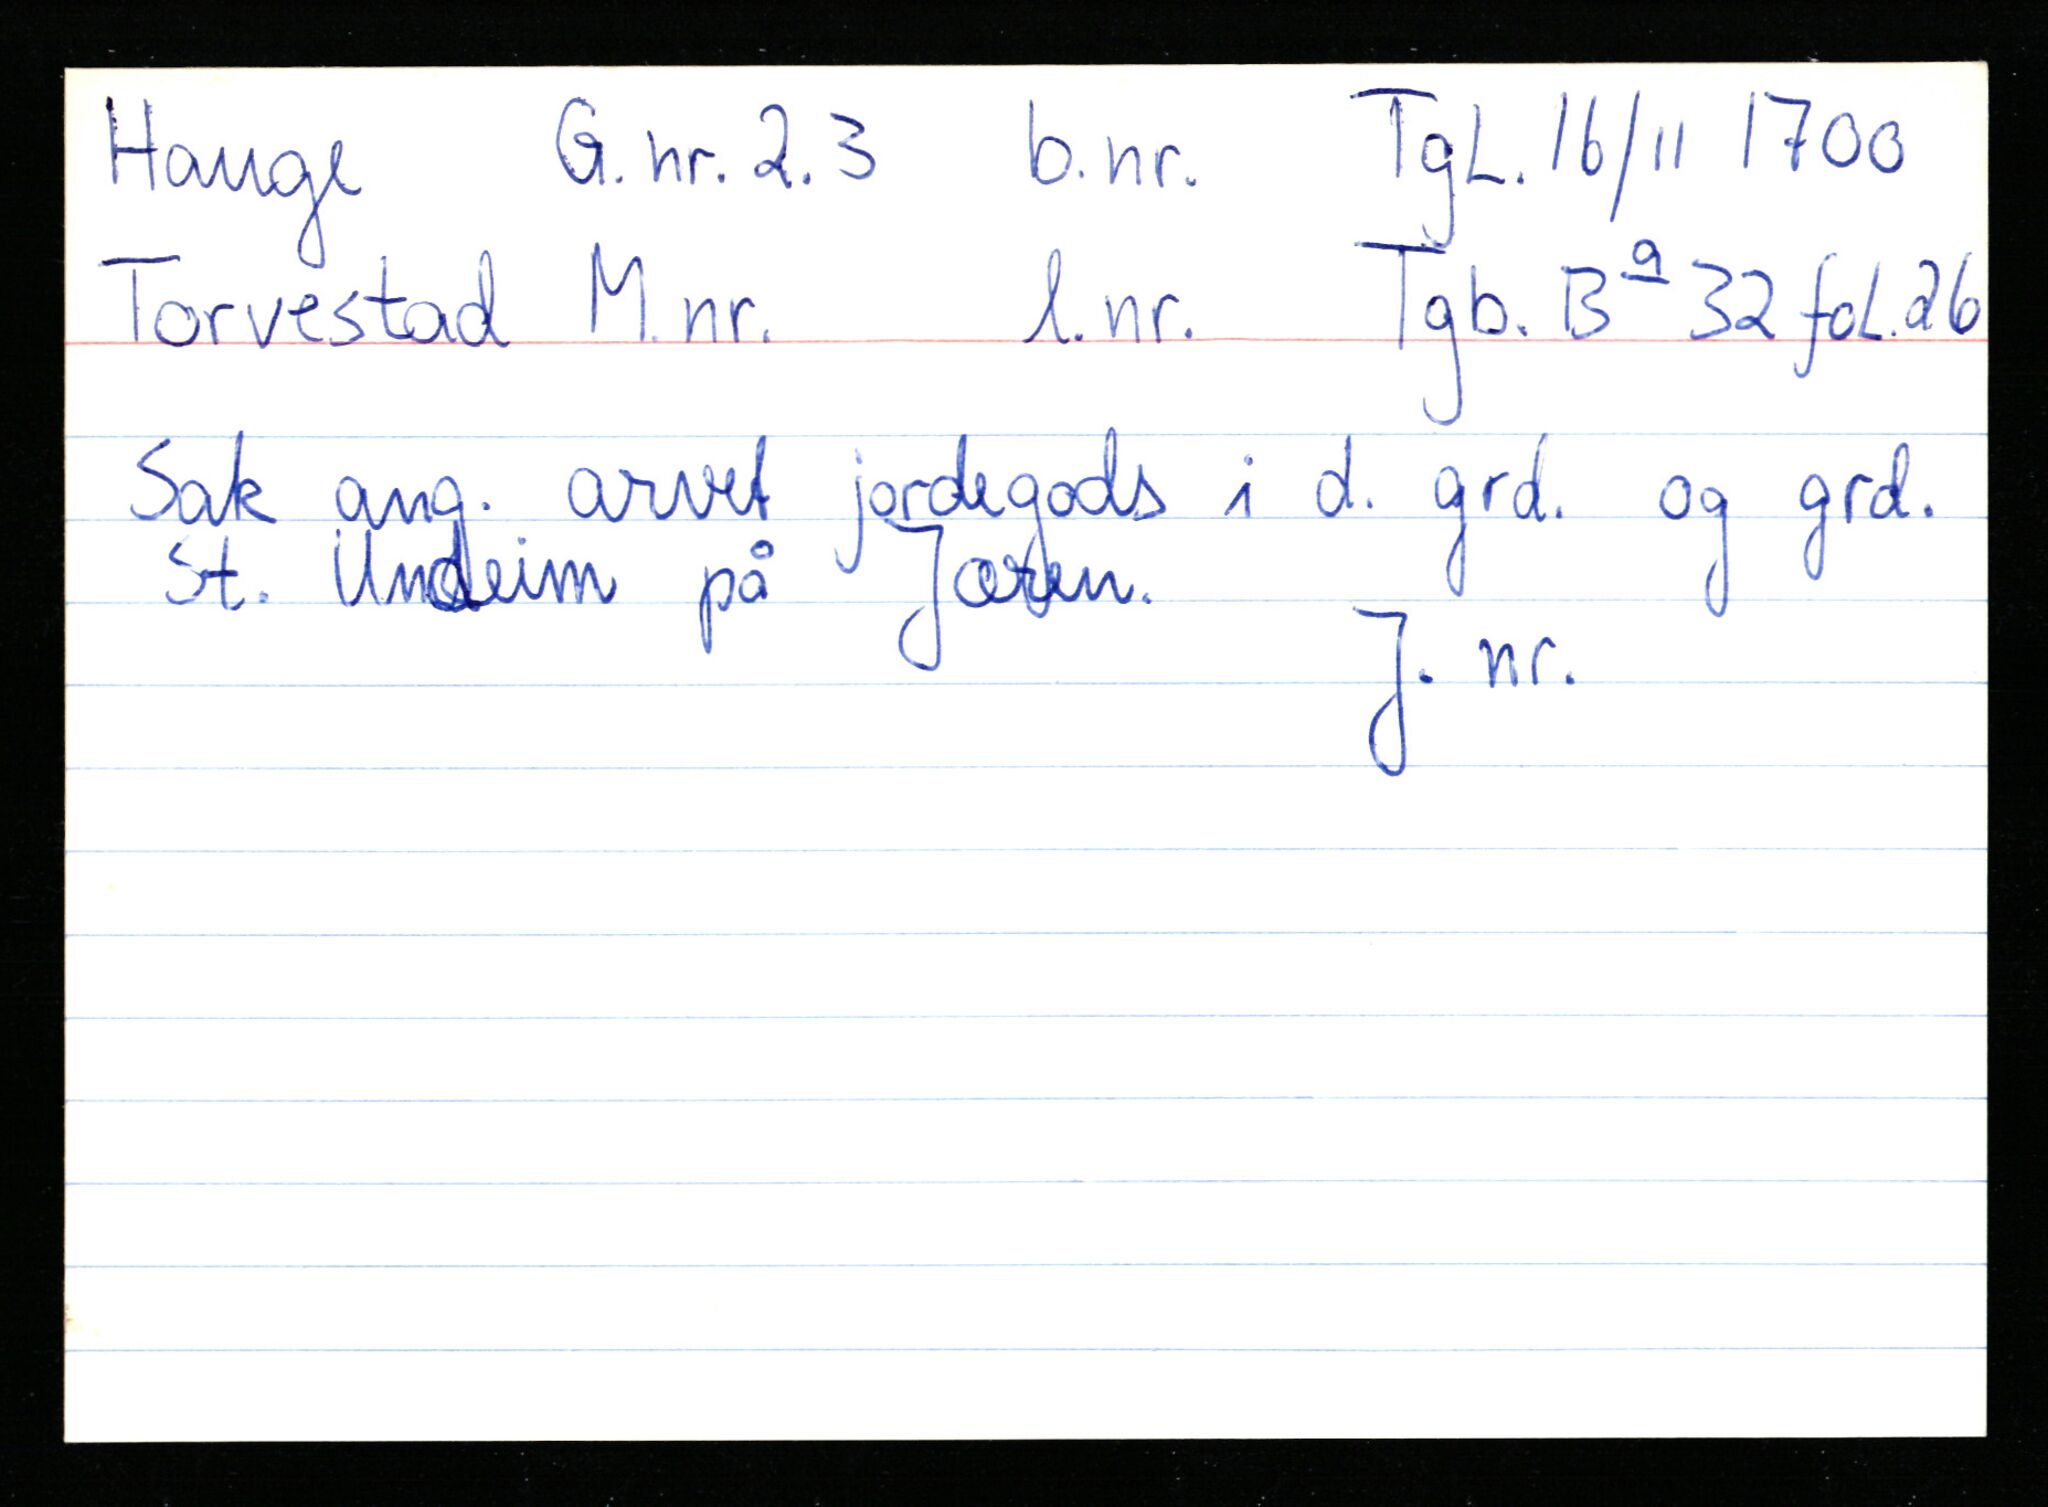 Hauge G. nr. 2.3 b. nr. TgL. 16/11 1700
Torvestad M. nr. l. nr. Tgb. Bª 32 fol. 26
Sak ang. arvet jordegods i d. grd. og grd.
St. Undeim på Jæren.
J. nr.